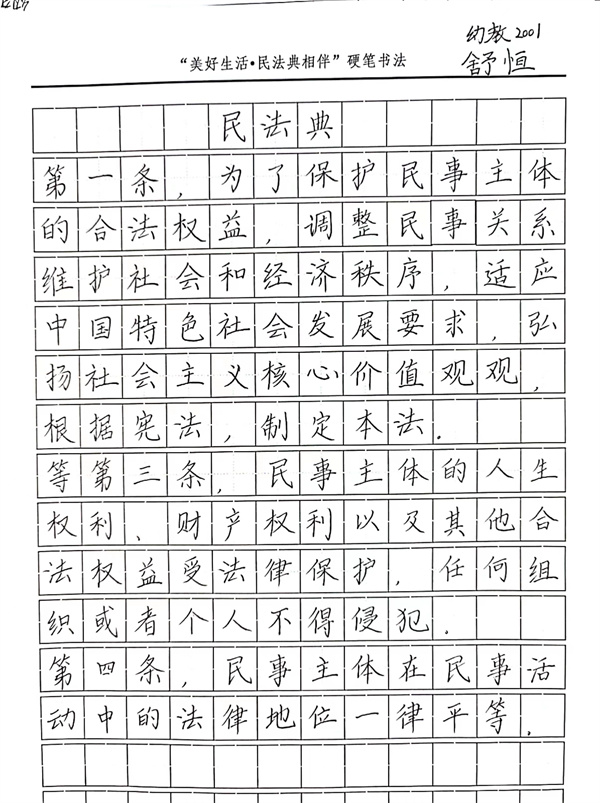 幼教2001
舒恒
“美好生活·民法典相伴”硬笔书法
民法典
第一条，为了保护民事主体
的合法权益，调整民事关系
维护社会和经济秩序，适应
中国特色社会发展要求，弘
扬社会主义核心价值观观，
根据宪法，制定本法．
等第三条，民事主体的人生
权利、财产权利以及其他合
法权益受法律保护，任何组
织或者个人不得侵犯．
第四条，民事主体在民事活
动中的法律地位一律平等．